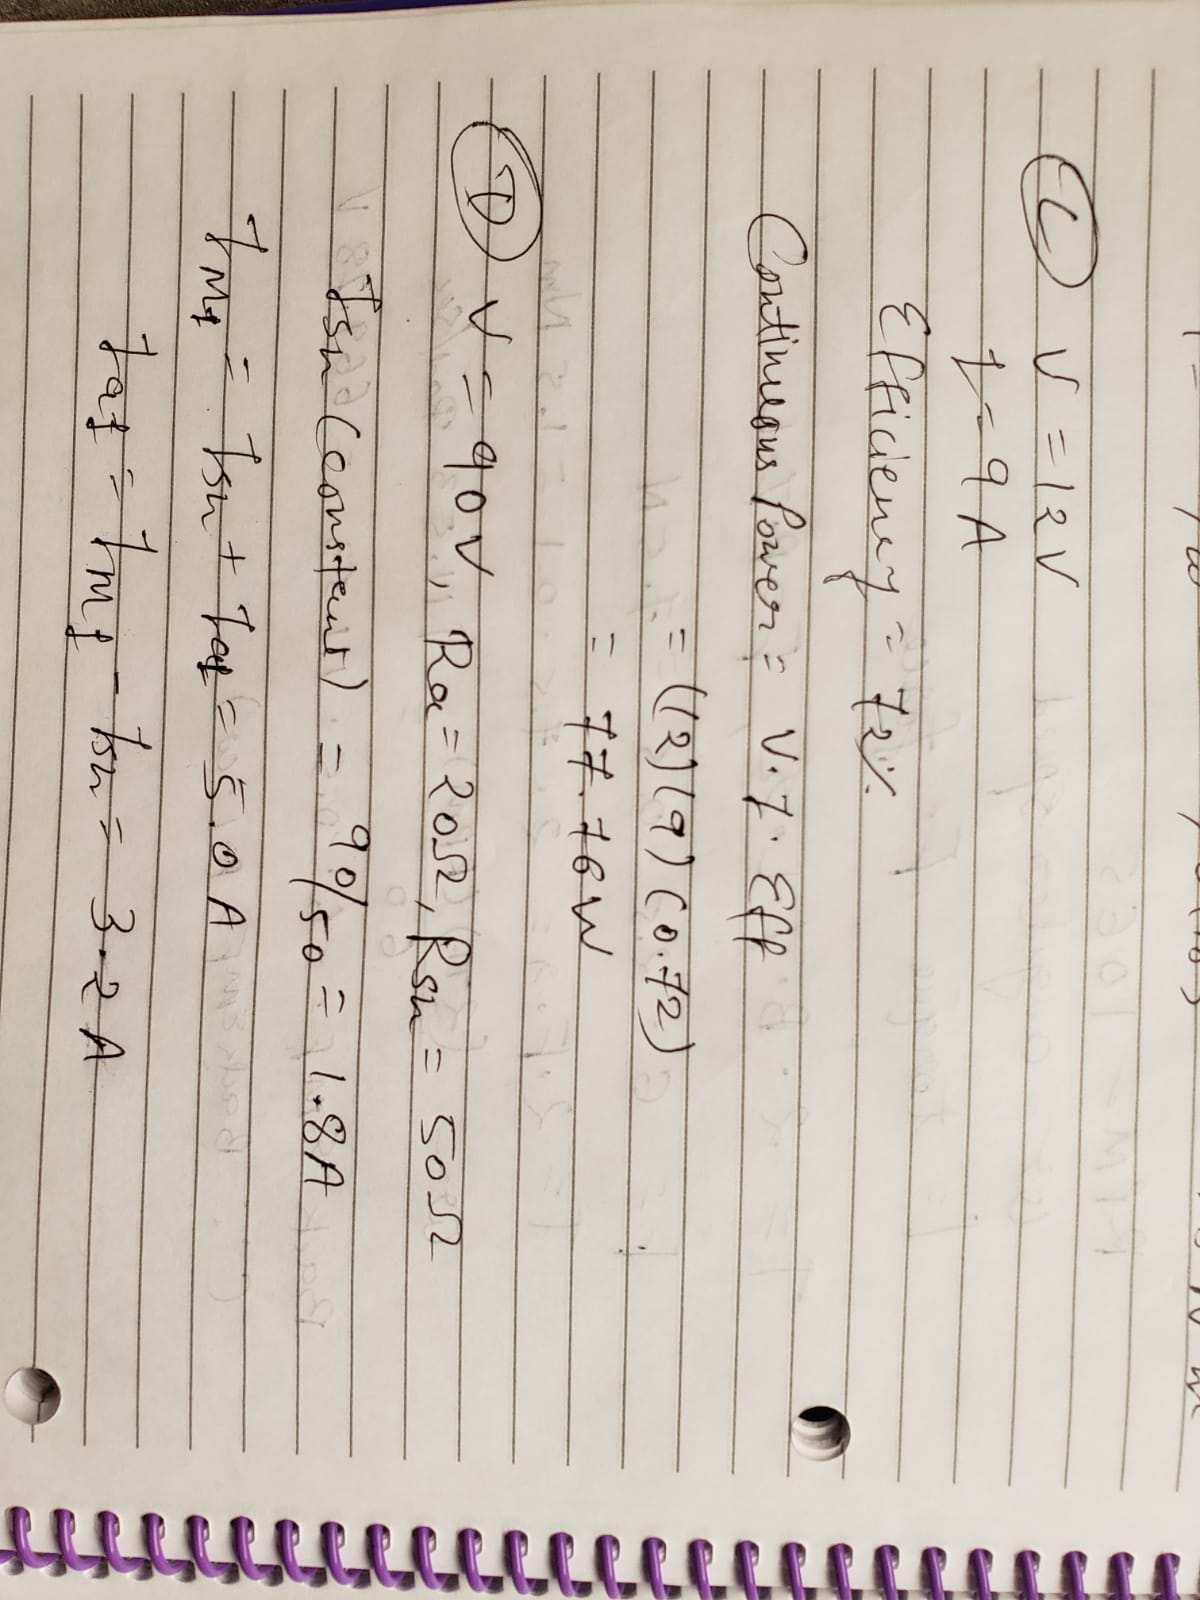 C V = 12V
I = 9A
Efficiency = 72%
Continuous Power = V. I. Eff
= (12)(9)(0.72)
= 77.76W
D V = 90V, Ra = 20Ω, Rsh = 50Ω
Ish (constant) = 90/50 = 1.8A
IMf = Ish + Iaf = 5.0A
Iaf = IMf - Ish = 3.2A